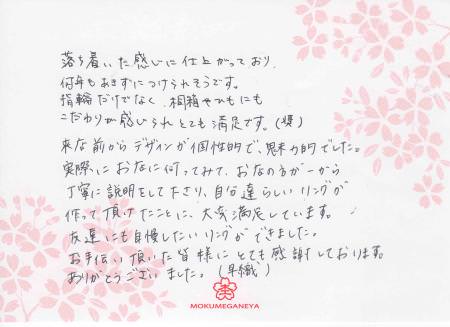 落ち着いた感じに仕上がっており、
何年もあきずにつけられそうです。
指輪だけでなく、桐箱やひもにも
こだわりが感じられとても満足です。(奨)
来る前からデザインが個性的で、魅力的でした。
実際におみせに伺ってみて、おみせの方が一から
丁寧に説明をして下さり、自分達らしいリングが
作って頂けたことに、大変満足しています。
友達にも自慢したいリングができました。
お手伝い頂いた皆様にとても感謝しております。
ありがとうございました。(早織)
MOKUMEGANEYA